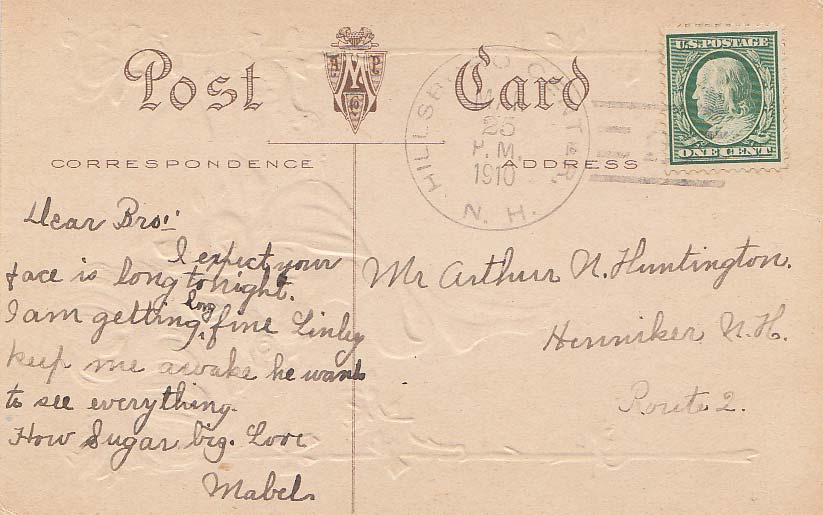 Post Card
CORRESPONDENCE
ADDRESS
U.S. POSTAGE
ONE CENT
HILLSBORO
25
P.M.
1910
N. H.
Dear Bro!!
I expect your
face is long tonight.
I am getting long fine Linley
keep me awake he wants
to see everything.
How Sugar big. Love
Mabel.
Mr Arthur N. Huntington.
Henniker N.H.
Route 2.